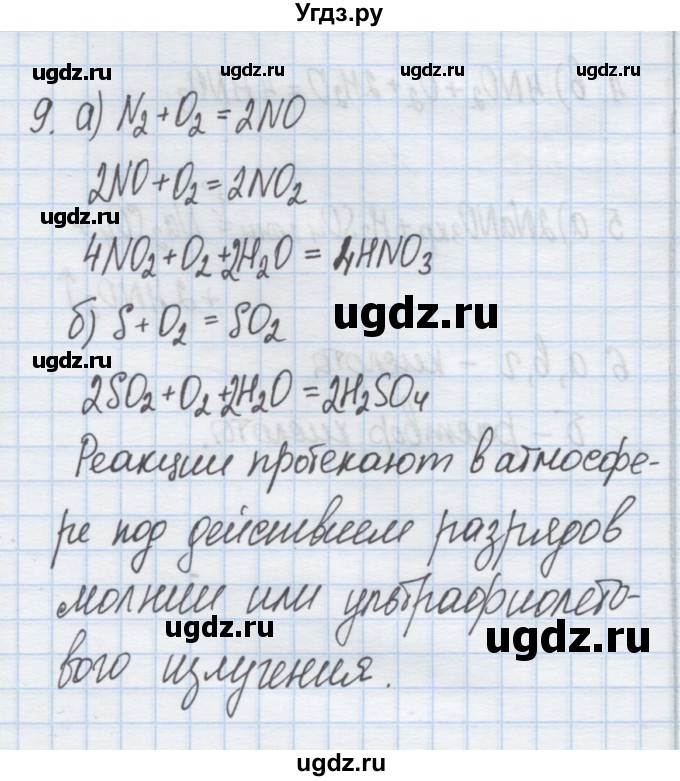 Угдз.ру
ugdz.ru ugdz.ru ugdz.ru
9. а) N₂ + O₂ = 2NO
2NO + O₂ = 2NO₂
ugdz.ru
4NO₂ + O₂ + 2H₂O = 4HNO₃
б) S + O₂ = SO₂
ugdz.ru
ugdz.ru
2SO₂ + O₂ + 2H₂O = 2H₂SO₄
Реакции протекают в атмосфе-
ре под действием разрядов
молнии или ультрафиолето-
ugdz.ru ugdz.ru
вого излучения.
ugdz.ru